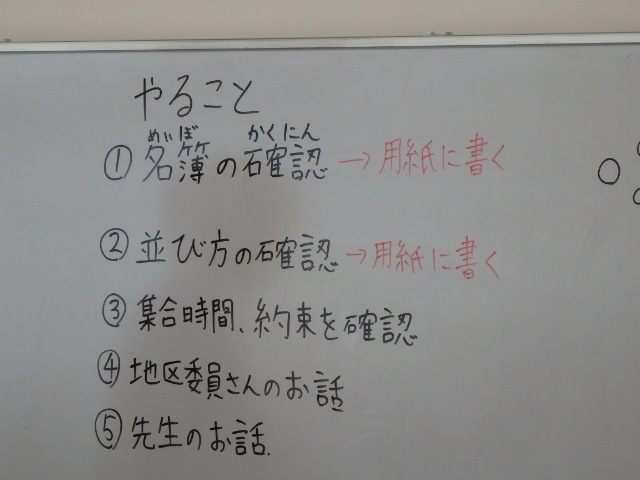 やること
めいぼ かくにん
①名簿の確認→用紙に書く
②並び方の確認→用紙に書く
③集合時間、約束を確認
④地区委員さんのお話
⑤先生のお話.